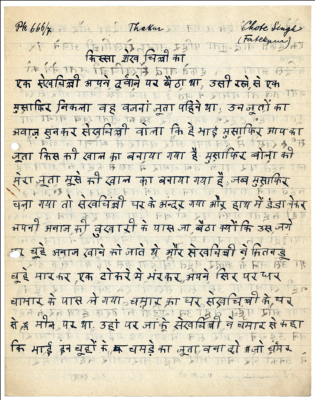 Ph 666/7 Thakur Chote Singh
(Fatehpur)
किस्सा शेख चिल्ली का
एक सेखचिल्ली अपने दरवाजे पर बैठा था, उसी रस्ते से एक
मुसाफिर निकला वह वजना जुता पहिने था, उन जुतों का
अवाज सुनकर सेखचिल्ली बोला कि हे भाई मुसाफिर आप का
जुता किस की खाल का बनाया गया है मुसाफिर बोला की
मेरा जुता मूसे की खाल का बनाया गया है, जब मुसाफिर
चला गया तो सेखचिल्ली घर के अन्दर गया और हाथ में डंडा लेकर
अपनी अनाज की बुखारी के पास जा बैठा क्योंकि उस जगे
पर चूहे अनाज खाने को जाते थे और सेखचिल्ली ने कितनहू
चूहे मारकर एक टोकरे में भरकर अपने सिर पर धर
चामार के पास ले गया, चमार का घर सेखचिल्ली के घर
से मील पर था, उहां पर जाके सेखचिल्ली ने चमार से कहा
कि भाई इन चूहों के चमड़े का जुता बना दो चमार